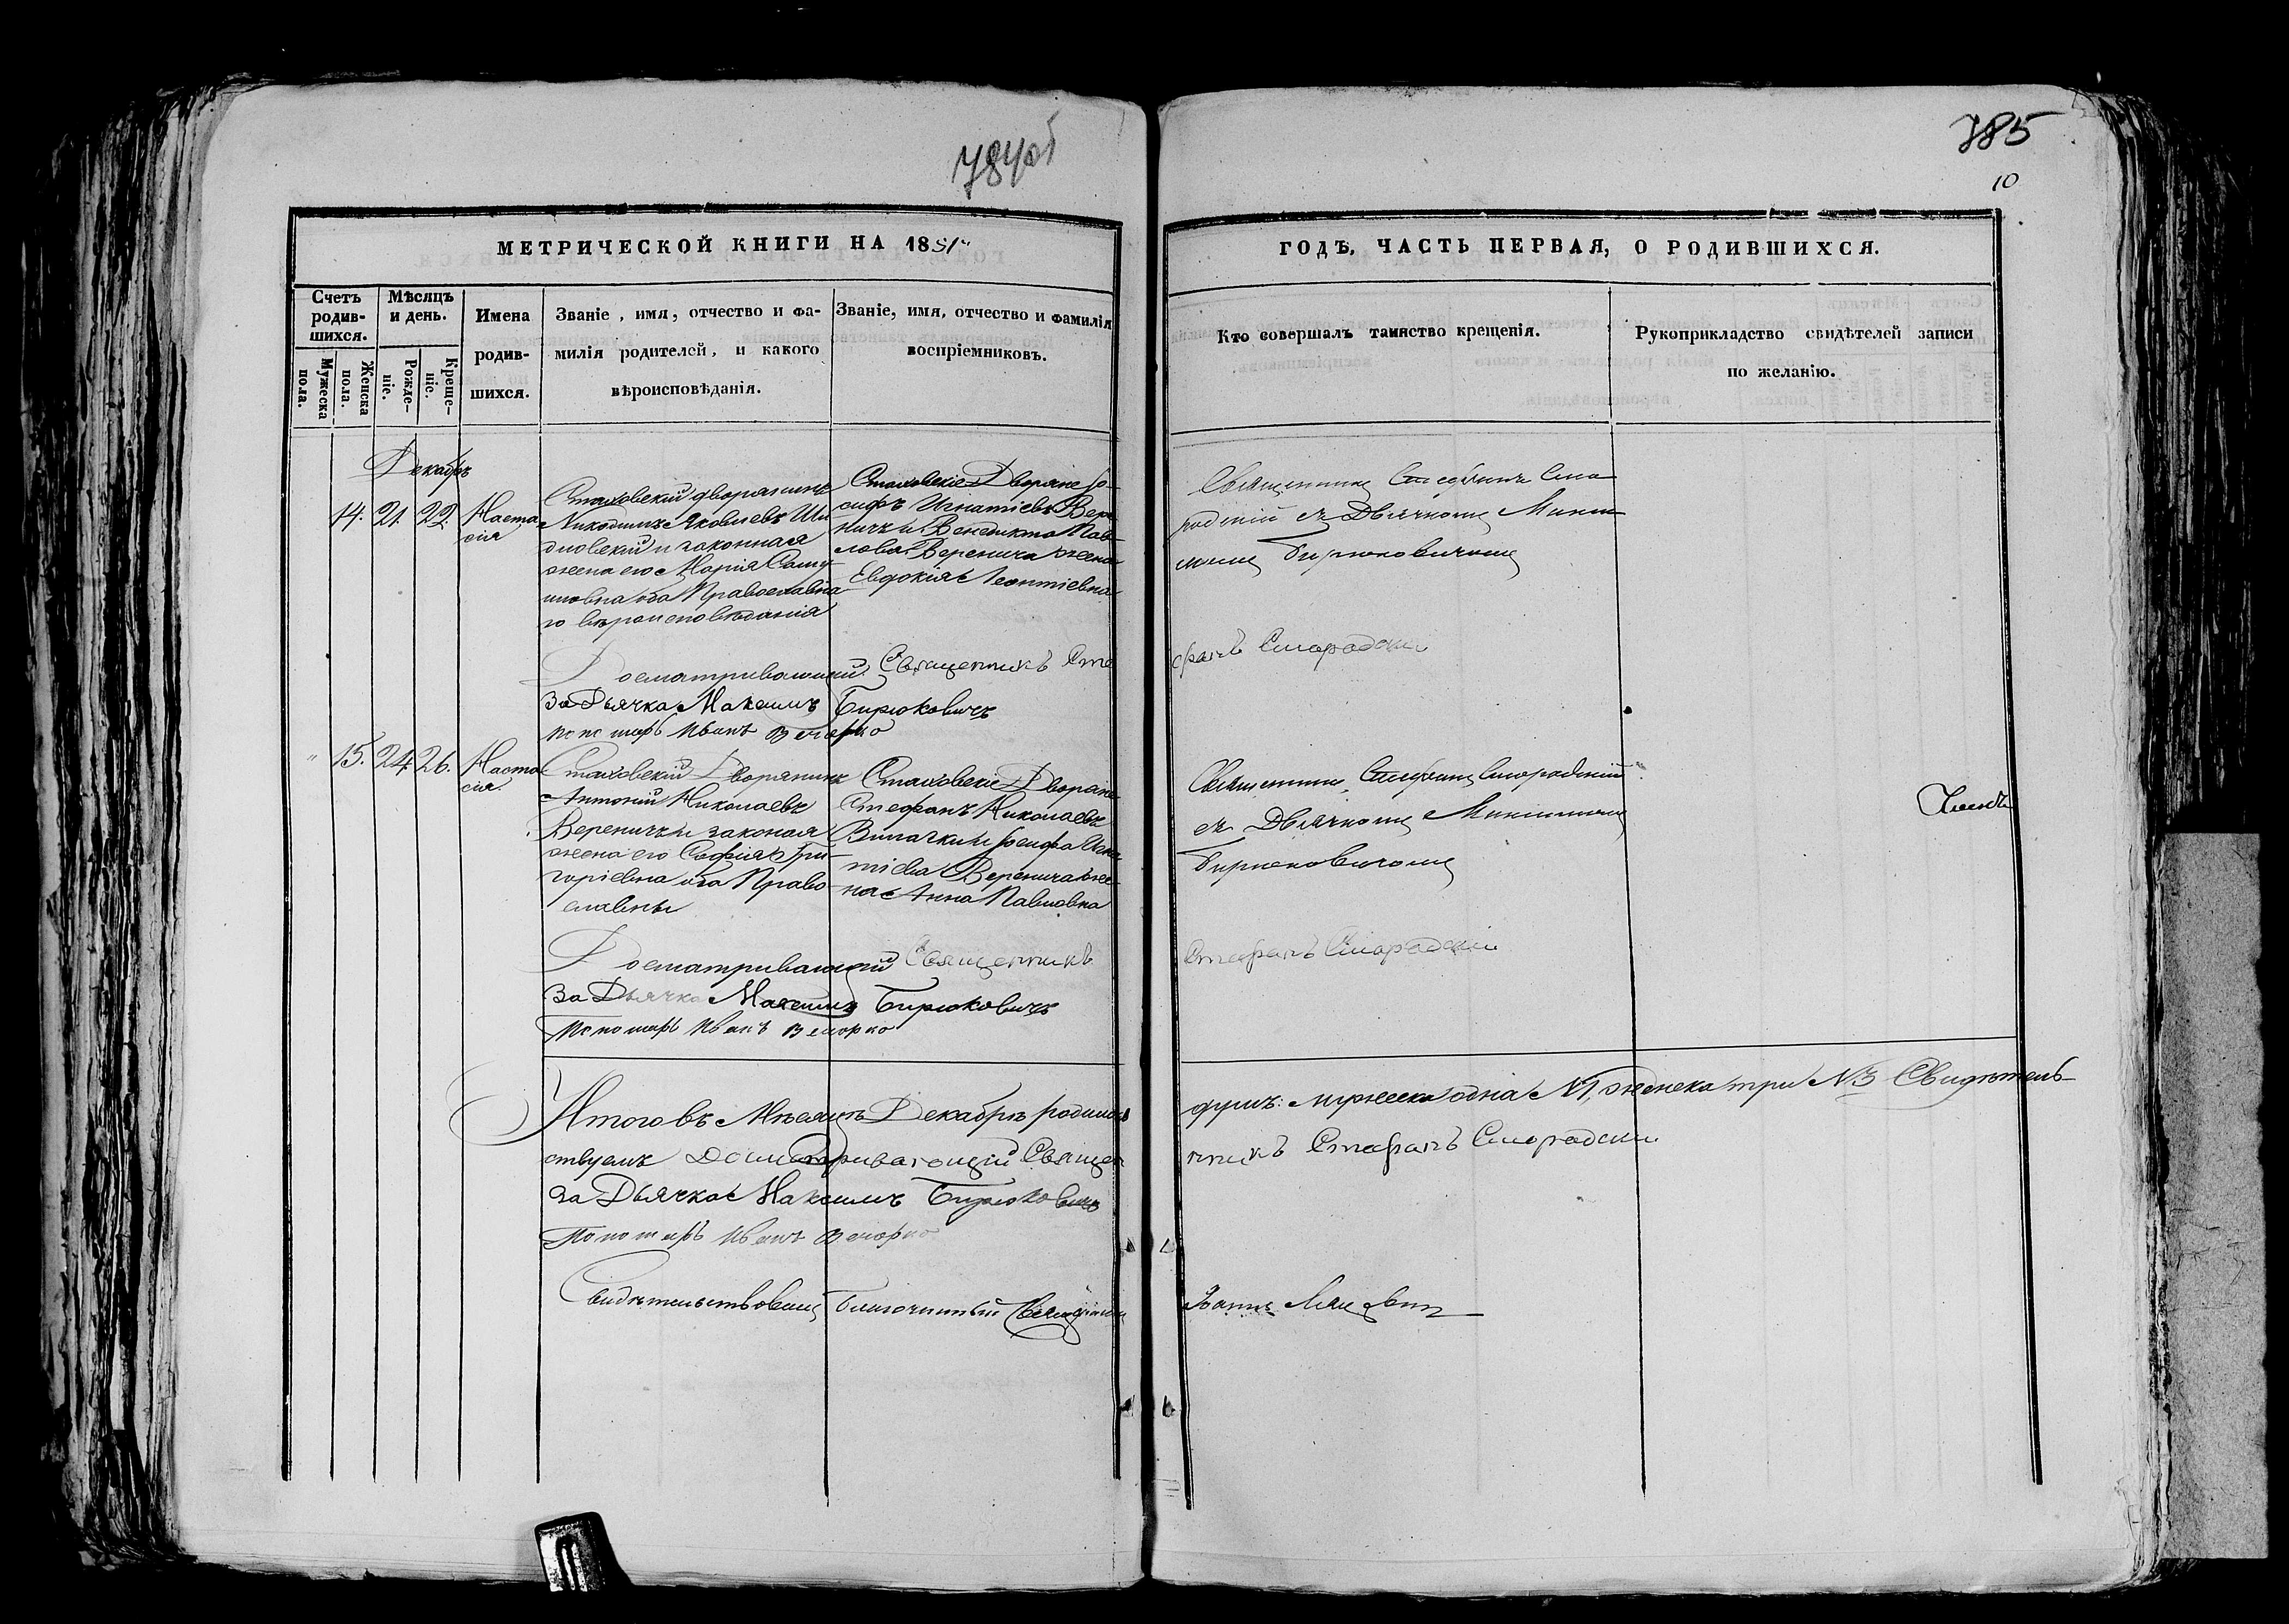 784об
785
10
МЕТРИЧЕСКОЙ КНИГИ НА 1851
ГОДЪ, ЧАСТЬ ПЕРВАЯ, О РОДИВШИХСЯ.
Счетъ родив-шихся.
Мужеска пола.
Женска пола.
Мѣсяцъ и день.
Рожде-ніе.
Креще-ніе.
Имена родив-шихся.
Званіе, имя, отчество и фа-
милія родителей, и какого
вѣроисповѣданія.
Званіе, имя, отчество и фамилія
воспріемниковъ.
Кто совершалъ таинство крещенія.
Рукоприкладство свидѣтелей записи
по желанію.
Декабрь
14. 21. 22. Наста
сія
Стаховскій дворянинъ
Никодимъ Яковлевъ Ши
дловскій и законная
жена его Марія Саму
иловна оба Православна
го вѣроисповѣданія
Стаховскіе Дворяне Іо-
сифъ Игнатіевъ Вере
ничъ и Венедикта Пав-
лова Веренича жена
Евдокія Леонтіевна
Священникъ Стефанъ Смо
родскій съ Дьячкомъ Макси
момъ Бирюковичомъ
Досматривающій Священникъ Сте
фанъ Смородскій
За Дьячка Максимъ Бирюковичъ
Пономарь Иванъ Вечорко
15. 24. 26. Наста
сія
Стаховскій Дворянинъ
Антоній Николаевъ
Вереничъ и законая
жена его Софія Гри-
горіевна оба Право-
славны
Стаховскіе Дворяне
Стефанъ Николаевъ
и Іосифа Игна
тіева Веренича же-
на Анна Павловна
Священникъ Стефанъ Смородскій
съ Дьячкомъ Максимомъ
Бирюковичомъ
Досматривающій Священникъ
Стефанъ Смородскій
За Дьячка Максимъ Бирюковичъ
Пономарь Иванъ Вечорко
Итого въ Мѣсяцѣ Декабрѣ родилось
душъ: мужеска одна №1, женска три №3 Свидѣтель-
ствуемъ Досматривающій Священ
никъ Стефанъ Смородскій
За Дьячка Максимъ Бирюковичъ
Пономарь Иванъ Вечорко
Свидѣтельствовалъ Благочинный Священникъ
Іоаннъ